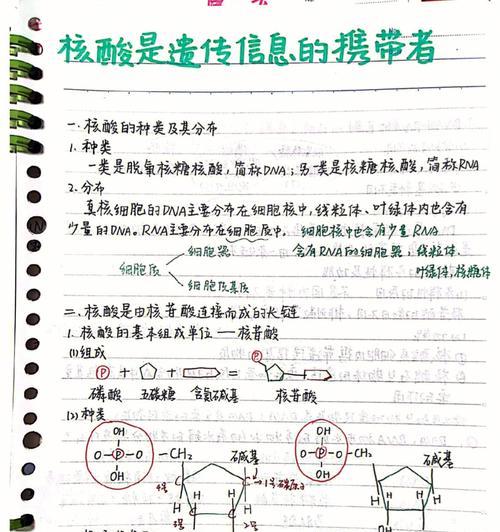 核酸是遗传信息的携带者
一.核酸的种类及其分布
1.种类
一类是脱氧核糖核酸,简称DNA;另一类是核糖核酸,简称RNA
2.分布
真核细胞的DNA主要分布在细胞核中,线粒体、叶绿体内也含有
少量的DNA。RNA主要分布在细胞质中。细胞核中也含有少量RNA
细胞质
细胞器 含有RNA的细胞器:线粒体、
叶绿体、核糖体
细胞质基质
二.核酸是由核苷酸连接而成的长链
1.核酸的基本组成单位——核苷酸
(1)组成
P + + = P
磷酸 五碳糖 含氮碱基 核苷酸
(2)种类
OH OH
O-P-O-CH₂ 碱基 O-P-O-CH₂ 碱基
OH OH
4号 1号碳原子
H H H H
3号 2号